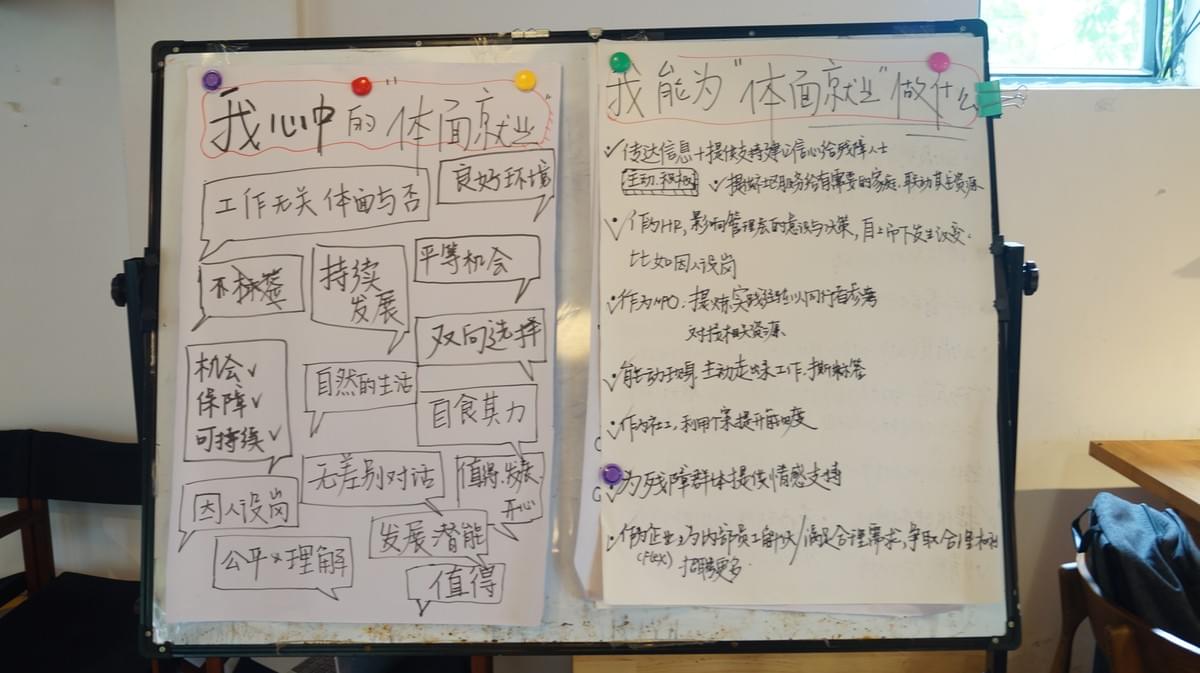 我心中的"体面就业"
工作无关体面与否
良好环境
不标签
持续
发展
平等机会
双向选择
机会✓
保障✓
可持续✓
自然的生活
自食其力
因人设岗
无差别对话
值得、发展、
开心
发展潜能
公平×理解
值得
我能为"体面就业"做什么
✓传达信息+提供支持建立信心给残障人士
主动.积极
✓提供社区服务给有需要的家庭.联动其它资源
✓作为HR,影响管理层的意识与决策,自上而下发生改变.
比如因人设岗
✓作为NPO.提炼实践经验以同行者参考
对接相关资源
✓主动走出来工作.撕标签
✓作为社工,利用个案提升
✓为残障群体提供情感支持
✓作为企业:为内部员工/满足合理需求,争取合理
(Flex)
招聘更多.